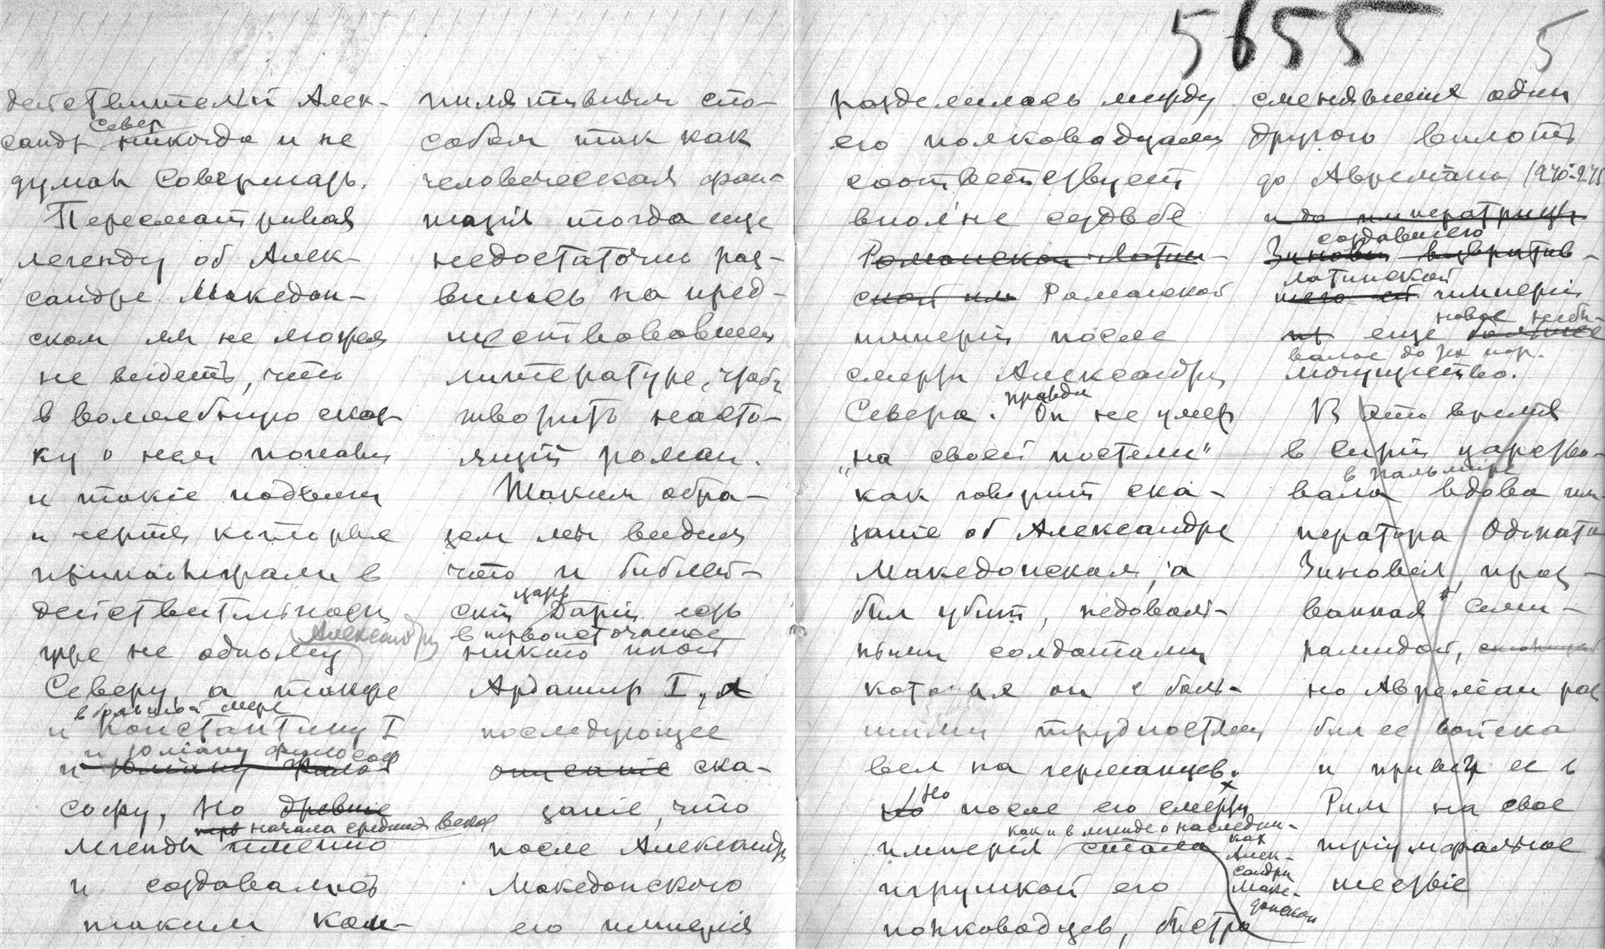 5655
5
действителѣй Алек-
Север
сандр никогда и не
думал совершать.
Пересматривая
легенду об Алек-
сандре Македон-
ском мы не можем
не видеть, что
в волшебную сказ-
ку о нем попали
и такіе подвиги
и черты которые
принадлежали в
действительности
Александру
уже не одному
Северу, а также
в большой мере
и Константину I
и Юліану философ
и Юліану Фило-
софу, Но древніе
начала средних веков
легенды именно
и создавались
таким ком-
пилятивным спо-
собом так как
человеческая фан-
тазія тогда еще
недостаточно раз-
вилась на пред-
шествовавшей
литературе, чтобы
творить насто-
ящій роман.
Таким обра-
зом мы видим
что и библей-
царь
скій Дарій есть
в первоисточнике
никто иной
Ардашир I, а
последующее
описаніе ска-
заніе, что
после Александра
Македонского
его имперія
разделилась между
его полководцами
соответствует
вполне судьбе
Романской Латин-
ской или Романской
имперіи после
смерти Александра
правда
Севера. Он не умер
„на своей постели"
как говорит ска-
заніе об Александре
Македонском, а
был убит, недоволь-
ными солдатами
которых он с боль-
шими трудностями
вел на германцев.
Но
но после его смерти
как и в легенде о наследни-
ках
Алек-
сандра
Маке-
донской
имперія стала
игрушкой его
полководцев, быстро
сменявшихся один
другого вплоть
до Авреліана (270-275
и до императрицы
создавшего
Зиновіи возвратив-
латинской
шего ей имперіи
новое небы-
еще большее
валое до тех пор.
могущество.
В это время
в Сиріи царство-
в Пальмире
вала вдова им-
ператора Одената
Зиновия, проз-
ванная Семи-
рамидой,
но Авреліан раз
бил ее войска
и привез ее в
Рим на свое
тріумфальное
шествіе